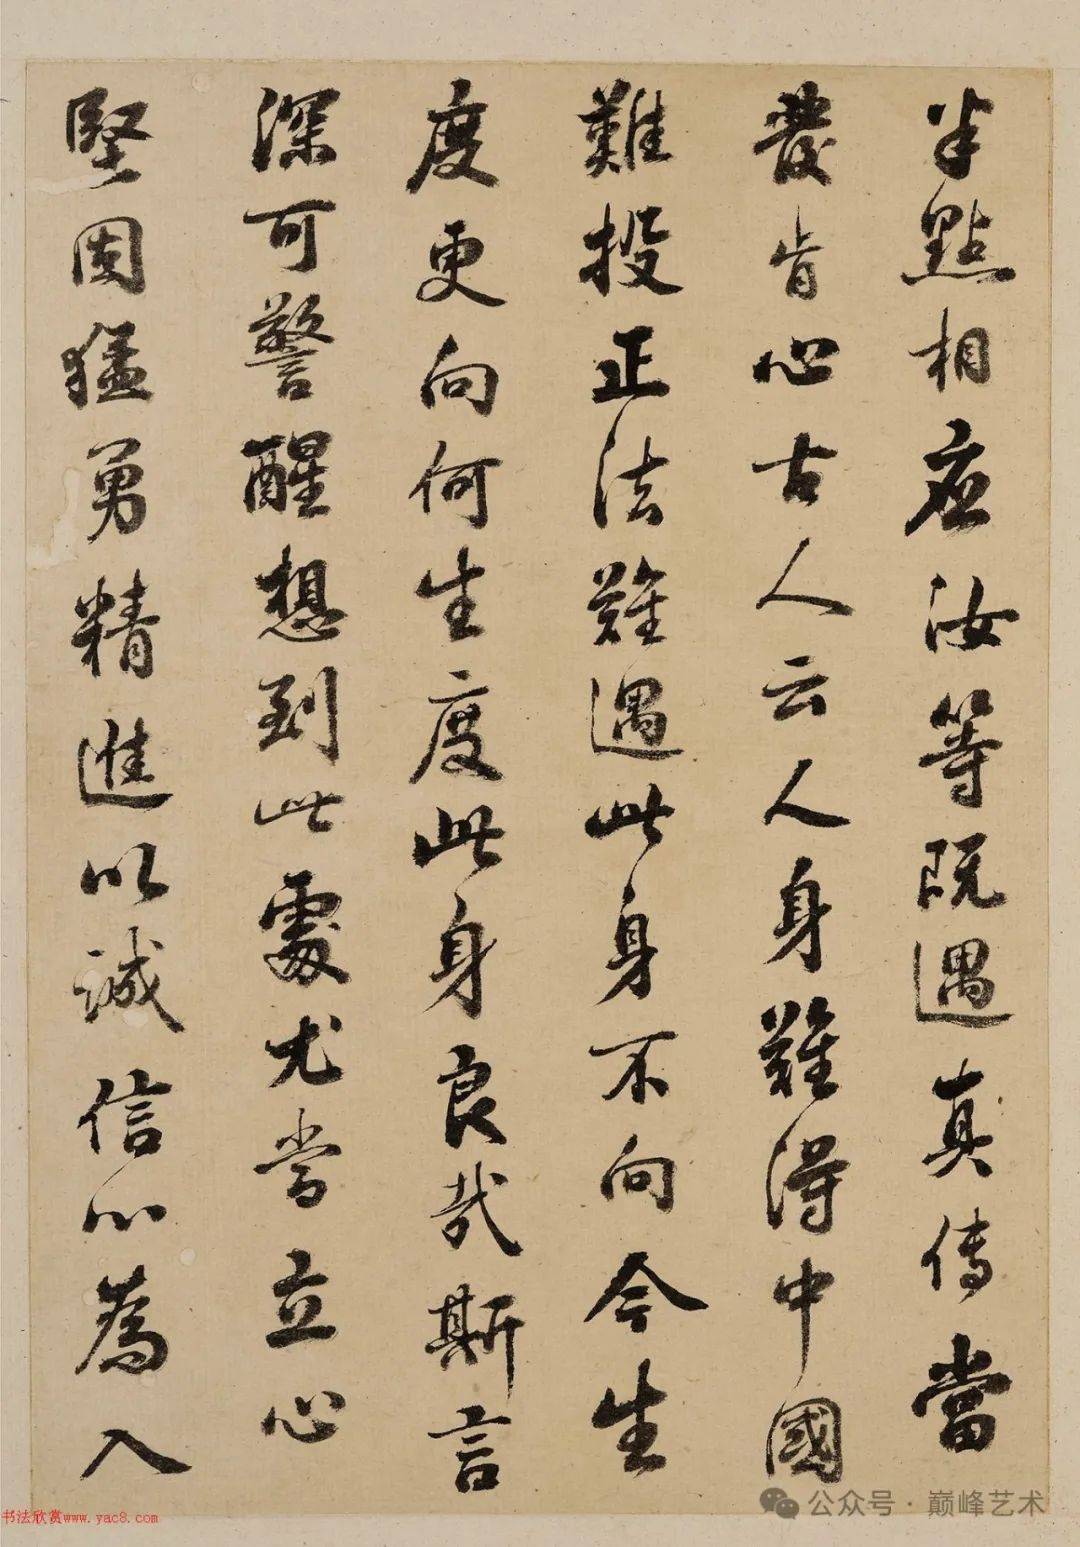 半點相應汝等既遇真傳當
發肯心古人云人身難得中國
難投正法難遇此身不向今生
度更向何生度此身良哉斯言
深可警醒想到此處尤當立心
堅固猛勇精進以誠信心為入
书法欣赏www.yac8.com
公众号·巅峰艺术